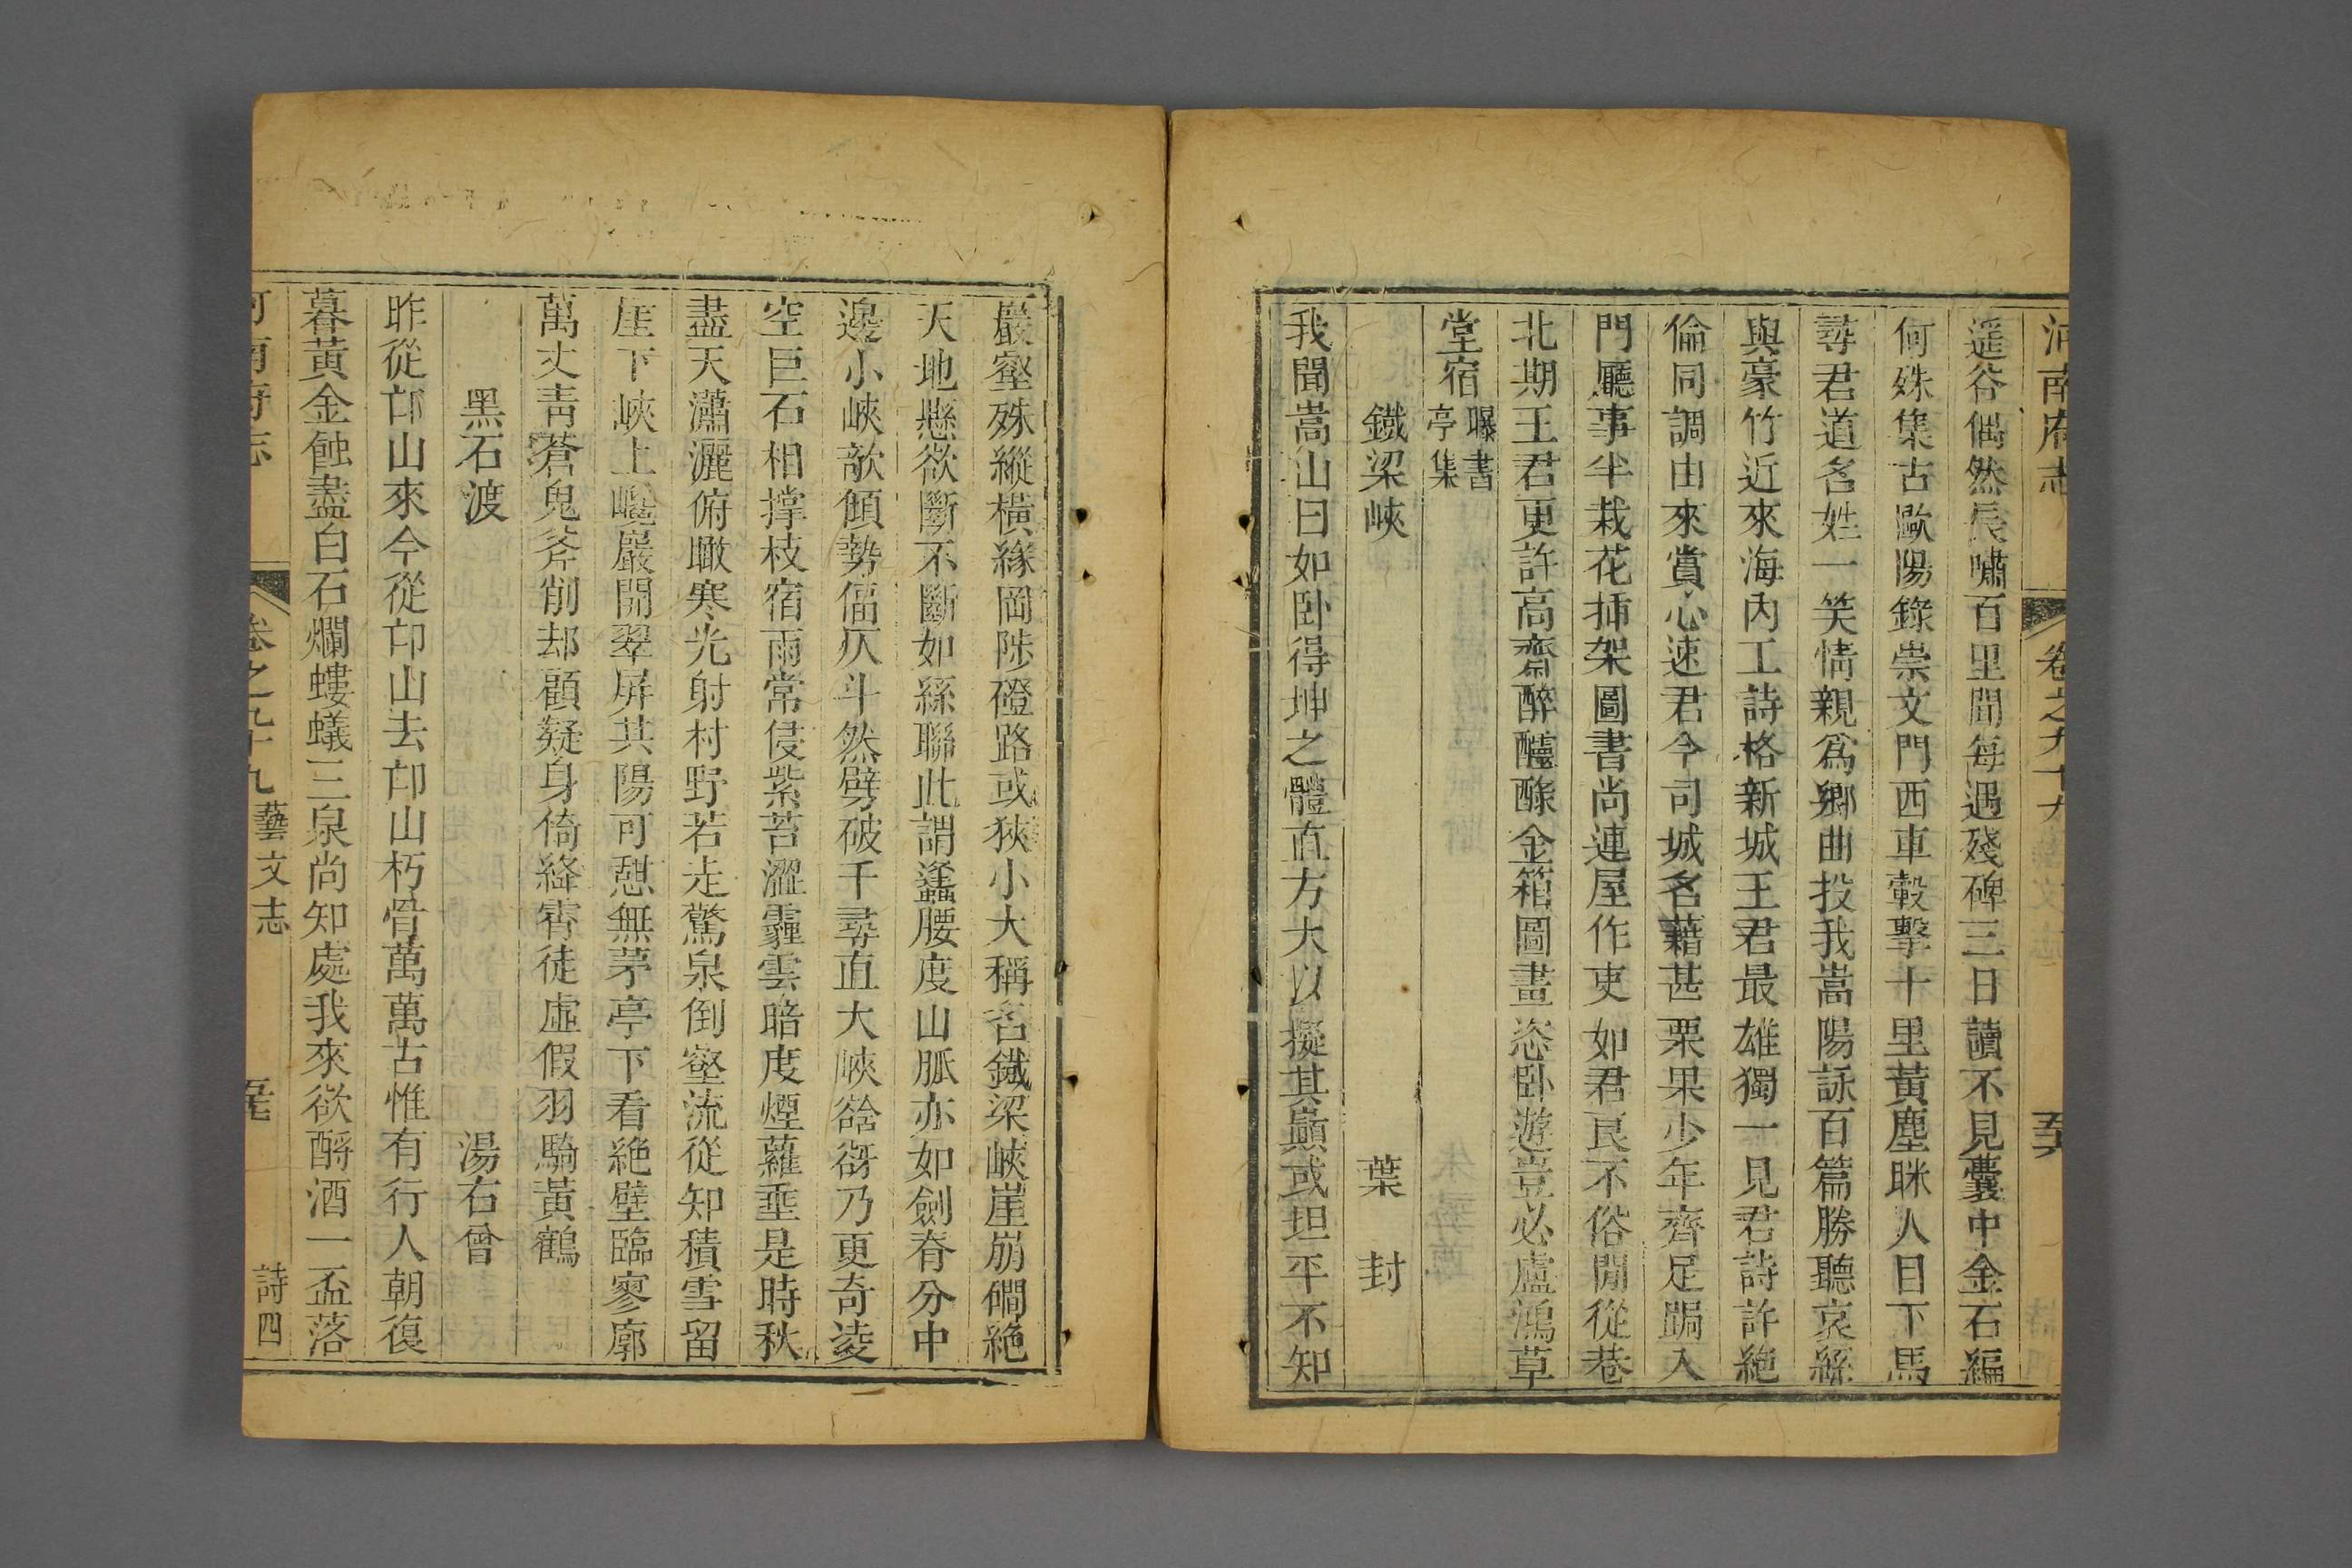 河南府志 卷之九十九 五六
遥谷偶然長嘯百里聞每遇殘碑三日讀不見囊中金石編
何殊集古歐陽錄崇文門西車轂擊十里黃塵眯人目下馬
尋君道名姓一笑情親爲鄉曲投我嵩陽詠百篇勝聽哀絲
與豪竹近來海內工詩格新城王君最雄獨一見君詩許絶
倫同調由來賞心速君今司城名藉甚栗果少年齊足跼入
門廳事半栽花揷架圖書尚連屋作吏如君良不俗閒從巷
北期王君更許高齋醉醽醁金箱圖畫恣卧遊豈必盧鴻草
堂宿 曝書亭集
鐵梁峽 葉封
我聞嵩山曰如卧得坤之體直方大以擬其巔或坦平不知
巖壑殊縱橫緣岡陟磴路或狹小大稱名鐵梁峽崖崩磵絶
天地懸欲斷不斷如絲聯此謂蠭腰度山脈亦如劍脊分中
邊小峽欹傾勢偪仄斗然劈破千尋直大峽谽谺乃更奇淩
空巨石相撑枝宿雨常侵紫苔澀霾雲暗度煙蘿垂是時秋
盡天瀟灑俯瞰寒光射村野若走驚泉倒壑流從知積雪留
厓下峽上巉巖開翠屏其陽可憇無茅亭下看絶壁臨寥廓
萬丈青蒼鬼斧削却顧疑身倚絳霄徒虛假羽騎黃鶴
黑石渡 湯右曾
昨從邙山來今從邙山去邙山朽骨萬萬古惟有行人朝復
暮黃金蝕盡白石爛螻蟻三泉尚知處我來欲酹酒一盃落
河南府志 卷之九十九 藝文志 詩四